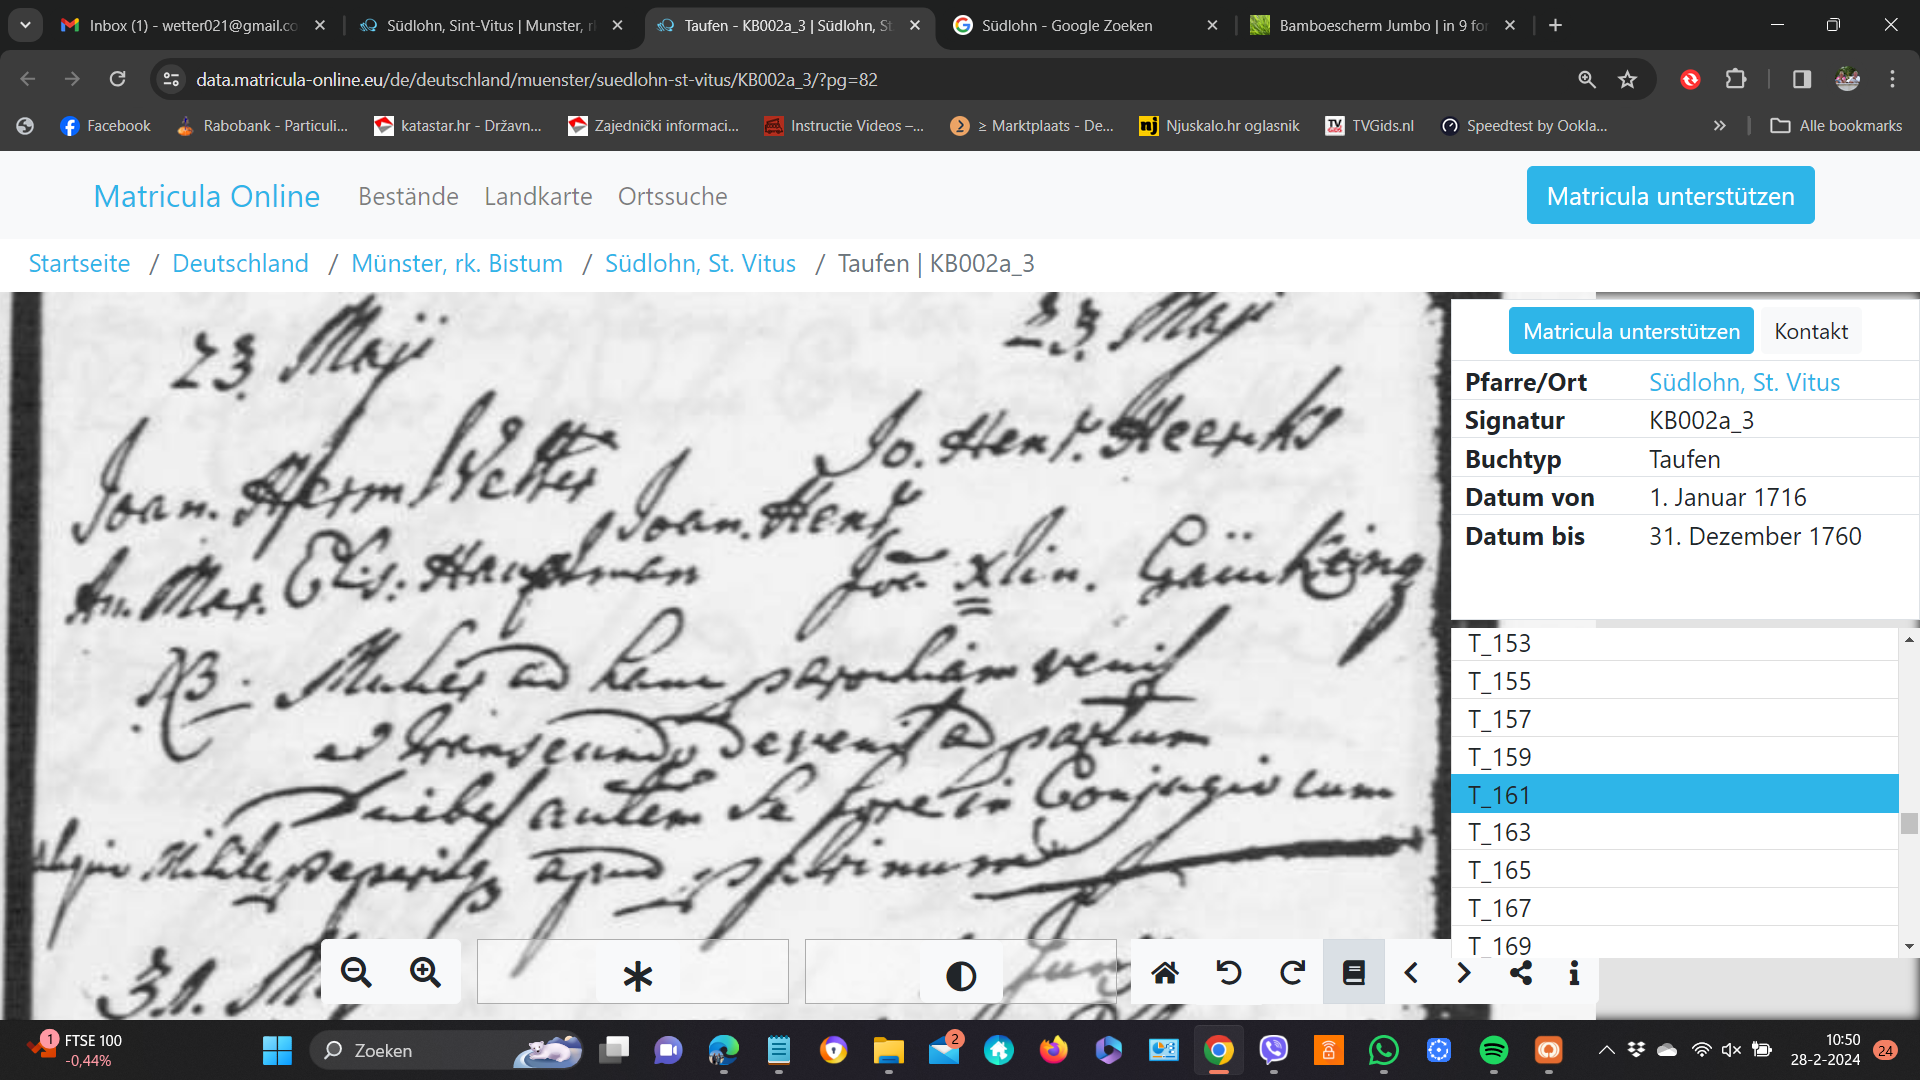 Inbox (1) - wetter021@gmail.co
Südlohn, Sint-Vitus | Munster, r
Taufen - KB002a_3 | Südlohn, St.
Südlohn - Google Zoeken
Bamboescherm Jumbo | in 9 for
data.matricula-online.eu/de/deutschland/muenster/suedlohn-st-vitus/KB002a_3/?pg=82
Facebook
Rabobank - Particuli...
katastar.hr - Državn...
Zajednički informaci...
Instructie Videos –...
≥ Marktplaats - De...
Njuskalo.hr oglasnik
TVGids.nl
Speedtest by Ookla...
»
Alle bookmarks
Matricula Online
Bestände
Landkarte
Ortssuche
Matricula unterstützen
Startseite / Deutschland / Münster, rk. Bistum / Südlohn, St. Vitus / Taufen | KB002a_3
23 Maji
Joan. Herm Wetter
An. Mar. Elis: Hauptman
Joan. Henr
23 Maji
Jo. Henr. Heerks
Xlin.
NB. Mulier ad hanc parochiam venit
ad devenit ad partum
autem se fore in Conjugio cum
apud
31. M
Matricula unterstützen
Kontakt
Pfarre/Ort Südlohn, St. Vitus
Signatur KB002a_3
Buchtyp Taufen
Datum von 1. Januar 1716
Datum bis 31. Dezember 1760
T_153
T_155
T_157
T_159
T_161
T_163
T_165
T_167
T_169
1
FTSE 100
-0,44%
Zoeken
2
10:50
28-2-2024
24